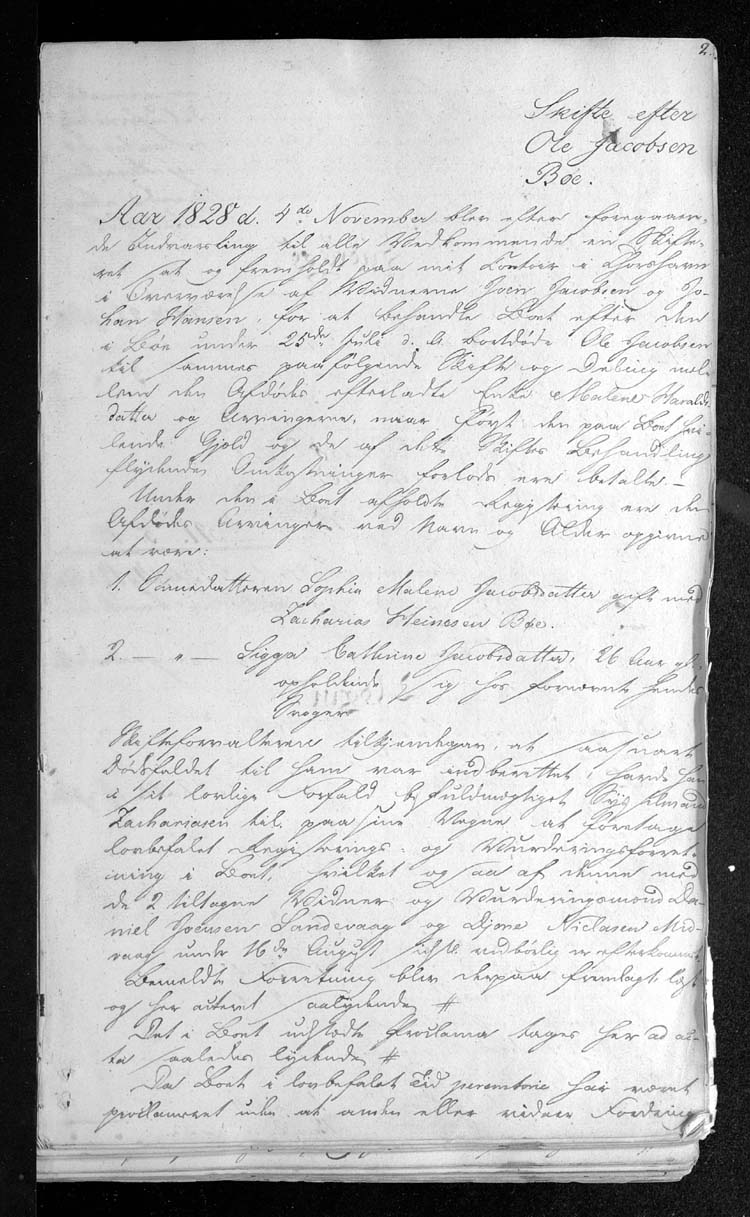 2.
Skifte efter
Ole Jacobsen
Bøe.
Aar 1828 d. 4de November blev efter foregaaen-
de Indvarsling til alle Vedkommende en Skifte-
ret sat og fremholdt paa mit Contoir i Thorshavn
i Overværelse af Vidnerne Joen Jacobsen og Jo-
han Hansen, for at behandle Boet efter den
i Bøe under 25de Juli d. A. bortdøde Ole Jacobsen
til sammes paafølgende Skifte og Deling mel-
lem den Afdødes efterladte Enke Malene Haralds
datter og Arvingerne, naar først den paa Boet hvi-
lende Gjeld og de af dette Skiftes Behandling
flydende Omkostninger forlods ere betalte. –
Under den i Boet afholdte Registering ere den
Afdødes Arvinger ved Navn og Alder opgivne
at være:
1. Sønnedatteren Sophia Malene Jacobsdatter gift med
Zacharias Heinesen Bøe.
2 — " — Sigga Cathrine Jacobsdatter, 26 Aar gl.
opholdende sig hos fornævnte hendes
Svoger
Skifteforvalteren tilkjendegav, at saasnart
Dødsfaldet til ham var indberettet, havde han
i sit lovlige Forfald befuldmægtiget
Zachariasen til paa sine Vegne at foretage
lovbefalet Registerings- og Vurderingsforret-
ning i Boet, hvilket ogsaa af denne med
de 2 tiltagne Vidner og Vurderingsmænd Da-
niel Joensen Sandevaag og Djone Niclasen Mid-
vaag under 16de August sidstl. vedbørlig er efterkommet
Bemeldte Forretning blev derpaa fremlagt, læst
og her acteret saalydende #
Det i Boet udstædte Proclama tages her ad ac-
ta saaledes lydende #
Da Boet i lovbefalet Tid peremtorie har været
proclameret uden at anden eller videre Fordring